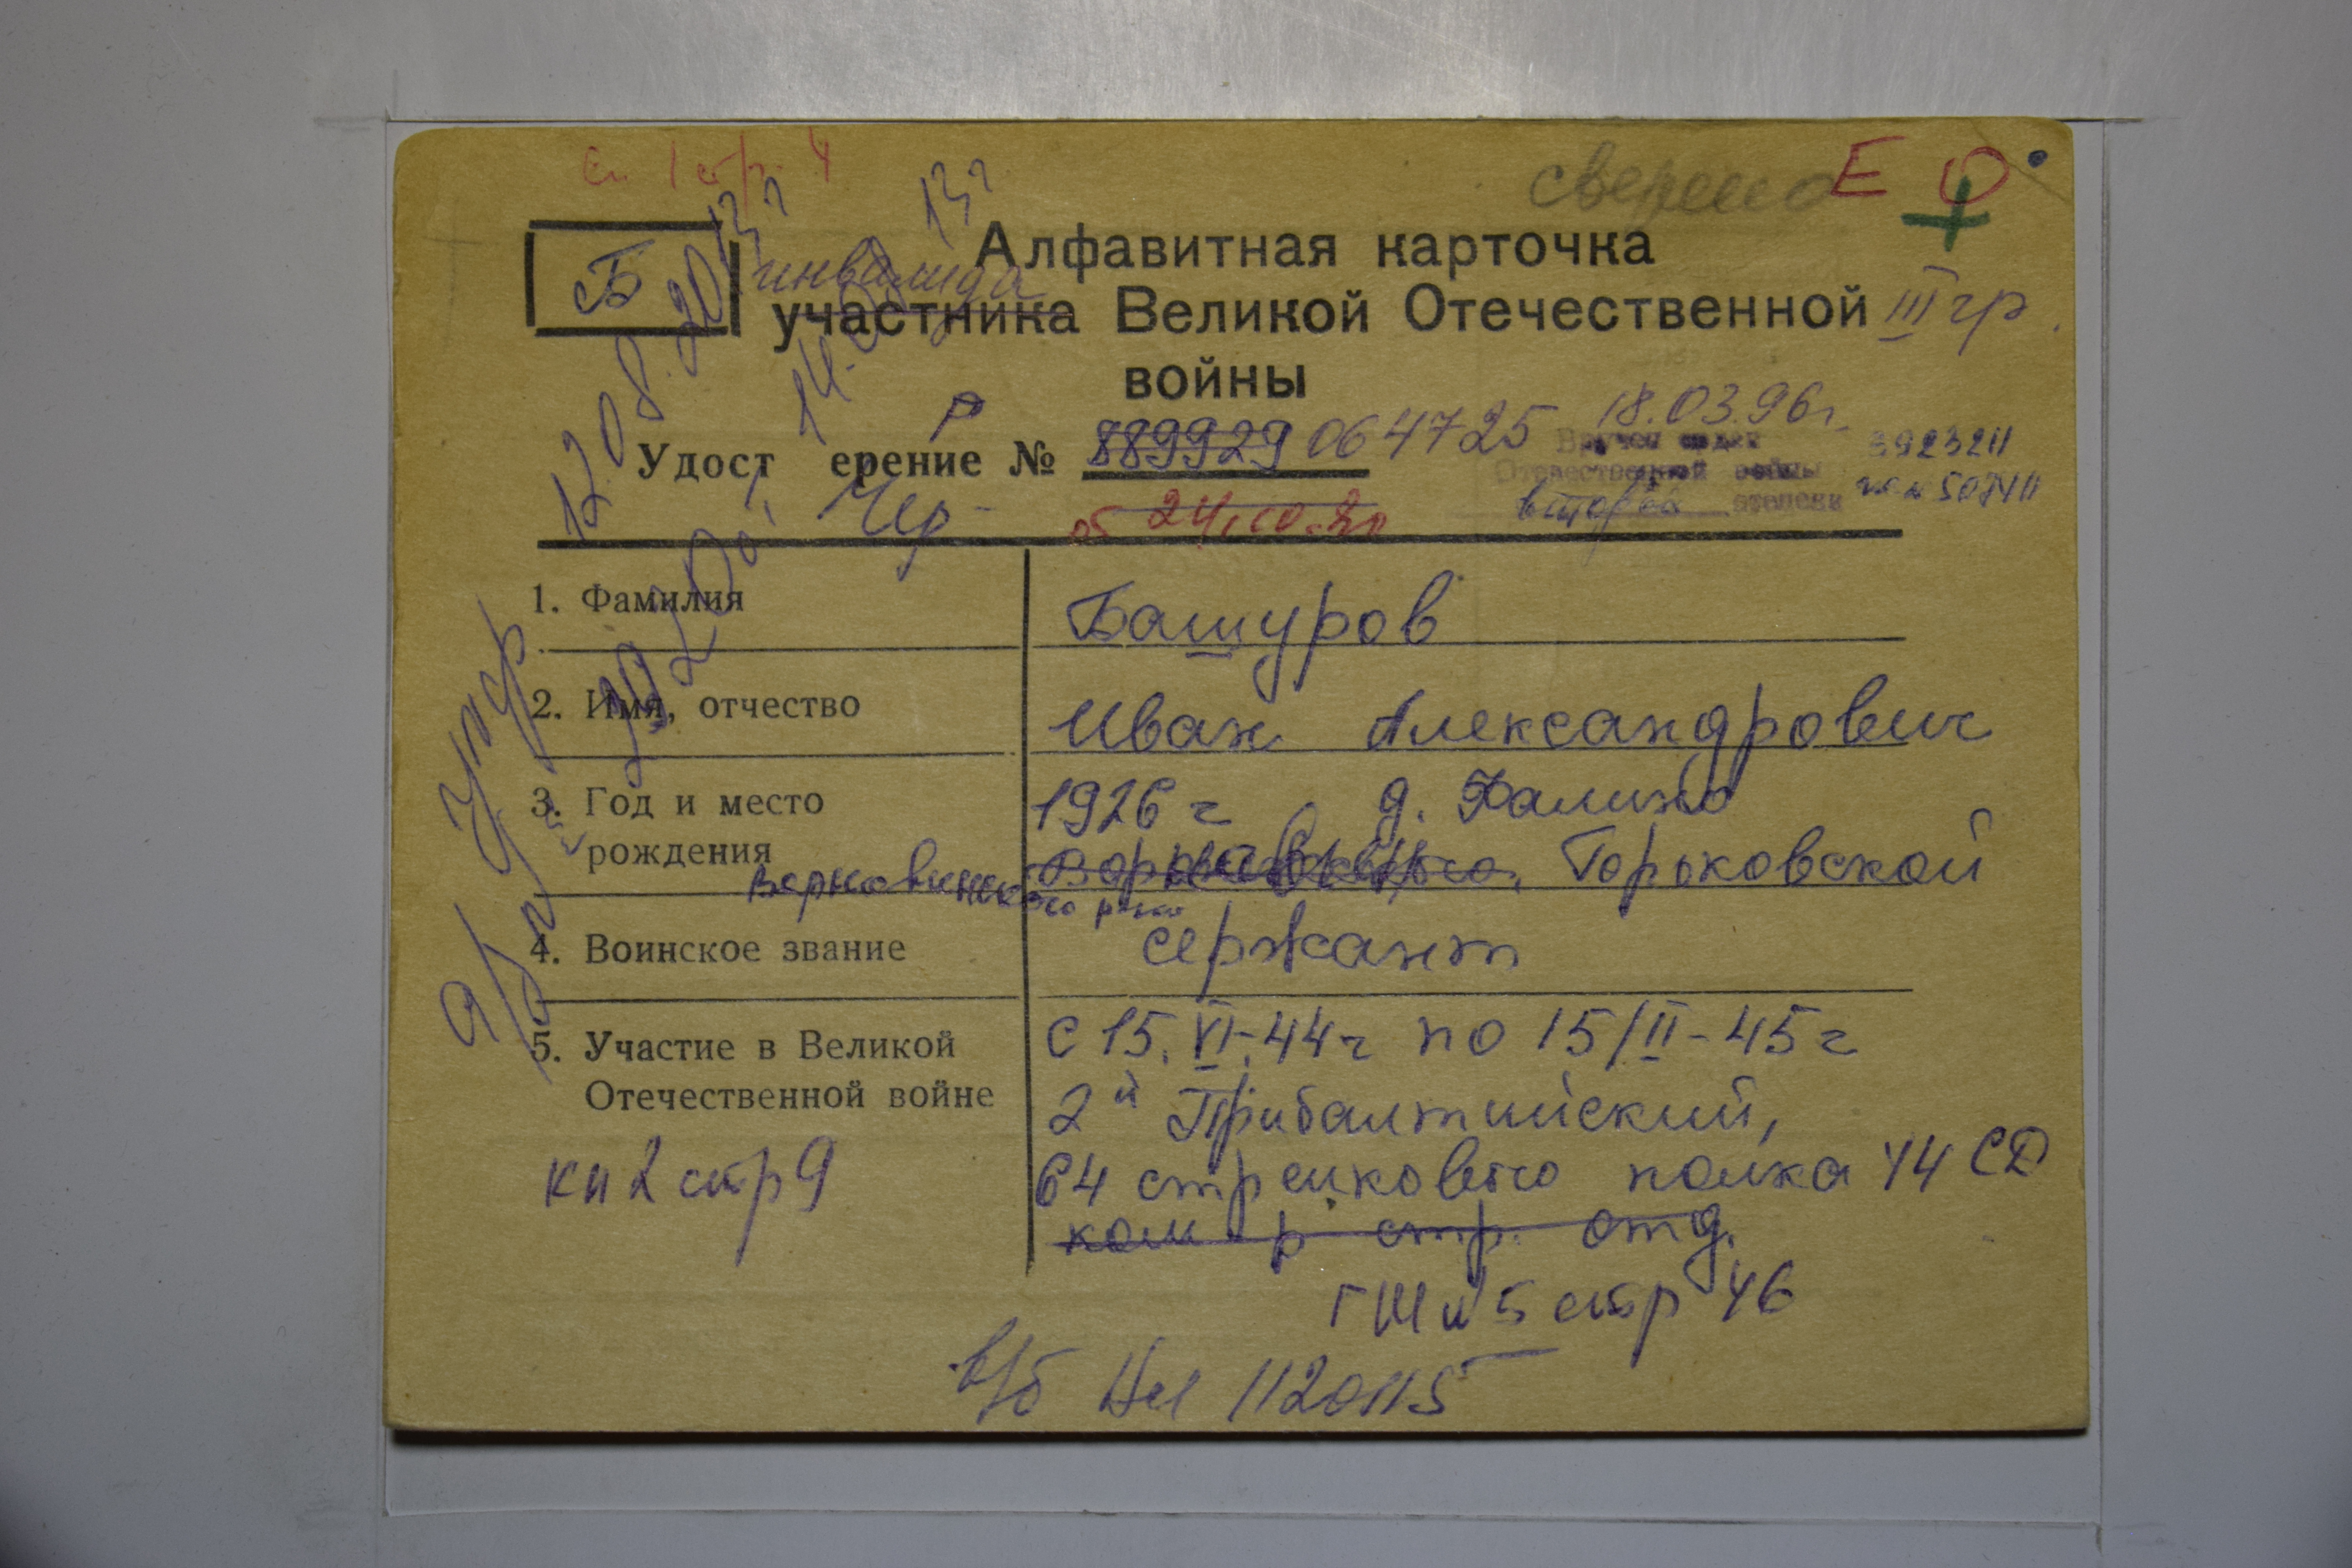 Сп. 1 стр. 4
сверено Е О
Б
Алфавитная карточка
инвалида
участника Великой Отечественной III гр.
войны
Удост ерение № 889929 064725 18.03.96г.
Р
Вручен орден
Отечественной войны
второй степени
3923211
от 24.10.80
1. Фамилия
Башуров
2. Имя, отчество
Иван Александрович
3. Год и место рождения
1926 г д. Фалино
Горьковской
Варнавинского р-на
4. Воинское звание
сержант
5. Участие в Великой
Отечественной войне
с 15.VI.44г по 15/II-45г
2й Прибалтийский,
64 стрелкового полка 44 СД
ком р стр. отд.
кн 2 стр 9
ГШ и 5 стр 46
в/б 1120115